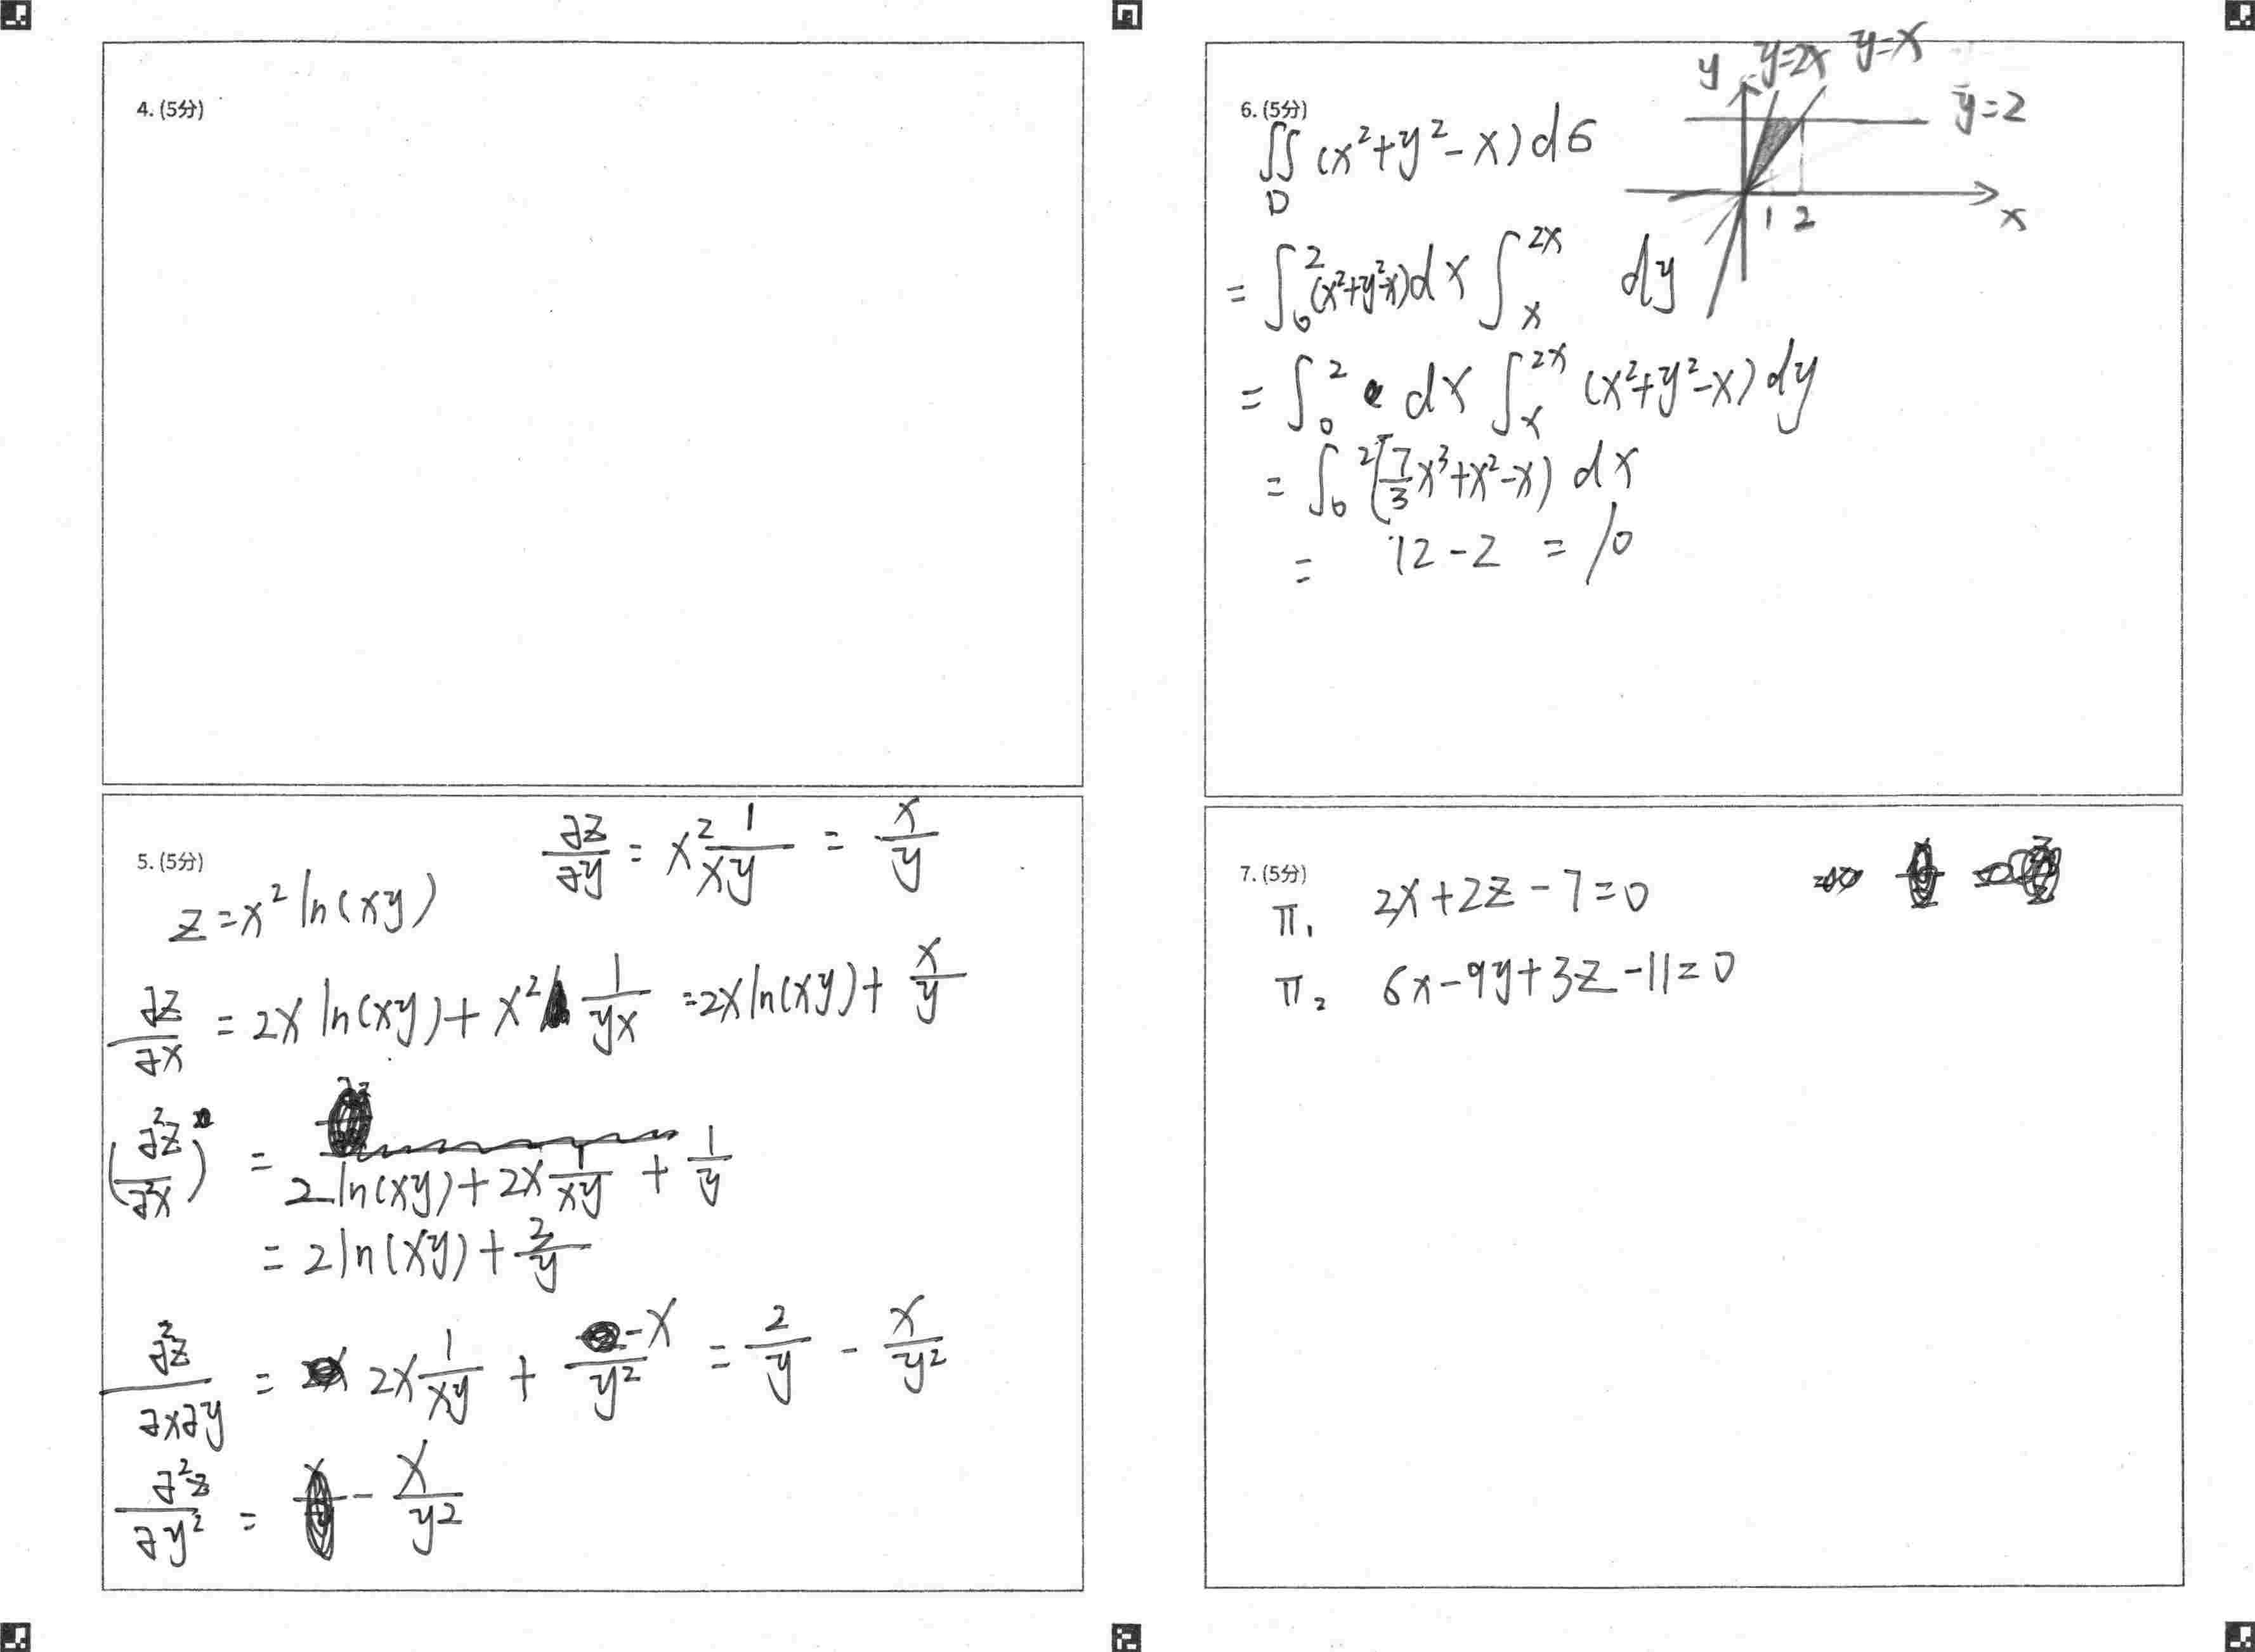 4. (5分)
5. (5分)
z=x² ln(xy)
∂z/∂y = x² 1/xy = x/y
∂z/∂x = 2x ln(xy) + x² 1/yx = 2x ln(xy) + x/y
(∂²z/∂²x) = 2 ln(xy) + 2x 1/xy + 1/y
= 2 ln(xy) + 2/y
∂²z/∂x∂y = 2x 1/xy + -x/y² = 2/y - x/y²
∂²z/∂y² = - x/y²
6. (5分)
y y=2x y=x
y=2
1 2 x
∬_D (x²+y²-x) dσ
= ∫₀² (x²+y²-x) dx ∫ₓ^2x dy
= ∫₀² dx ∫ₓ^2x (x²+y²-x) dy
= ∫₀² (7/3 x³+x²-x) dx
= 12-2 = 10
7. (5分)
π₁ 2x+2z-7=0
π₂ 6x-9y+3z-11=0